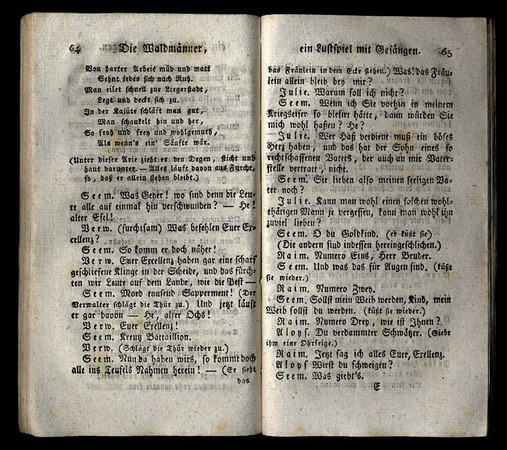 64 Die Waldmänner,
Von harter Arbeit müd und matt
Sehnt jedes sich nach Ruh.
Man eilet schnell zur Liegerstadt,
Legt und deckt sich zu.
In der Kajüte schläft man gut,
Man schaukelt hin und her,
So froh und frey und wohlgemuth,
Als wenn's ein' Sänfte wär.
(Unter dieser Arie zieht er den Degen, sticht und
haut darunter. — Alles läuft davon aus Furcht,
so, daß er allein stehen bleibt.)
Seem. Was Geyer! wo sind denn die Leu-
te alle auf einmal hin verschwunden? — He!
alter Esel!
Verw. (furchtsam) Was befehlen Euer Ex-
cellenz?
Seem. So komm er doch näher!
Verw. Euer Excellenz haben gar eine scharf
geschliffene Klinge in der Scheide, und das fürch-
ten wir Leute auf dem Lande, wie die Pest —
Seem. Mord tausend Sapperment! (Der
Verwalter schlägt die Thür zu.) Und jetzt läuft
er gar davon — He, alter Ochs!
Verw. Euer Exellenz!
Seem. Kreuz Battaillion.
Verw. (Schlägt die Thür wieder zu.)
Seem. Nun da haben wirs, so kommt doch
alle ins Teufels Nahmen herein! — (Er sieht
das
ein Lustspiel mit Gesängen. 65
das Fräulein in dem Ecke stehen.) Was! das Fräu-
lein allein bleib bey mir?
Julie. Warum soll ich nicht?
Seem. Wenn ich Sie vorhin in meinem
Kriegseifer so blesirt hätte, dann würden Sie
mich wohl haßen? He?
Julie. Wer Haß verdient muß ein böses
Herz haben, und das hat der Sohn eines so
rechtschaffenen Vaters, der auch an mir Vater-
stelle vertrat, nicht.
Seem. Sie lieben also meinen seeligen Va-
ter noch?
Julie. Kann man wohl einen solchen wohl-
thätigen Mann je vergessen, kann man wohl ihn
zuviel lieben?
Seem. O du Goldkind. (er küßt sie)
(Die andern sind indessen hereingeschlichen.)
Raim. Numero Eins, Herr Bruder.
Seem. Und was das für Augen sind. (küßt
sie wieder.)
Raim. Numero Zwey.
Seem. Sollst mein Weib werden, Kind, mein
Weib sollst du werden. (küßt sie wieder.)
Raim. Numero Drey, wie ist Ihnen?
Aloys. Du verdammter Schwätzer. (Giebt
ihm eine Ohrfeige.)
Raim. Jetzt sag ich alles Euer, Exellenz.
Aloys Wirst du schweigen?
Seem. Was giebt's.
E